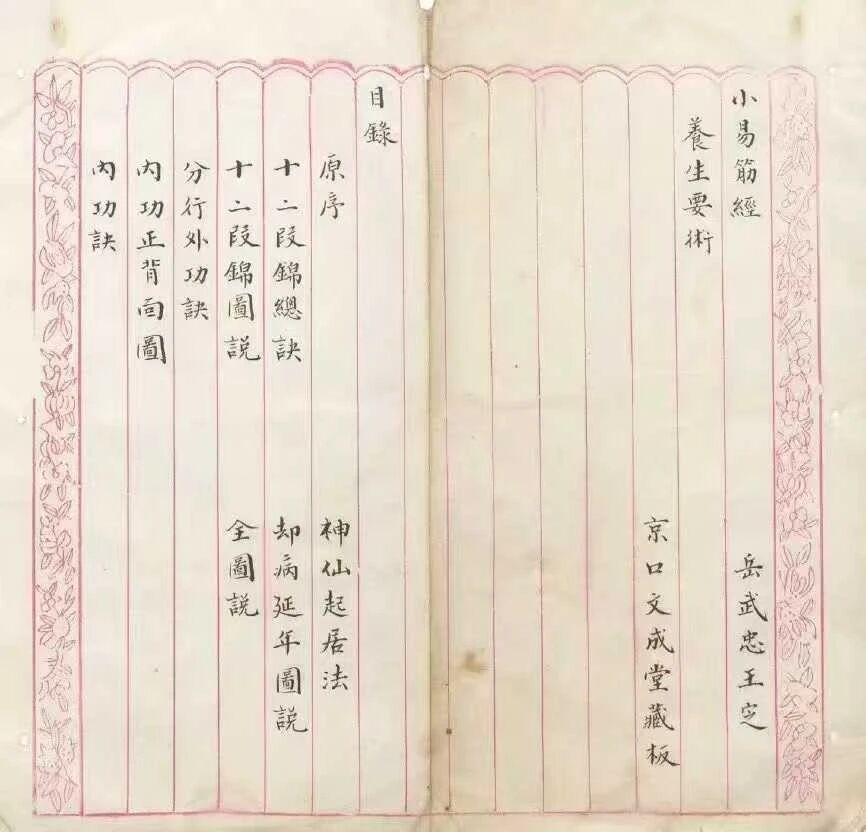 小易筋經 岳武忠王定
養生要術
京口文成堂藏板
目錄
原序 神仙起居法
十二段錦總訣 却病延年圖説
十二段錦圖説 全圖説
分行外功訣
内功正背面圖
内功訣